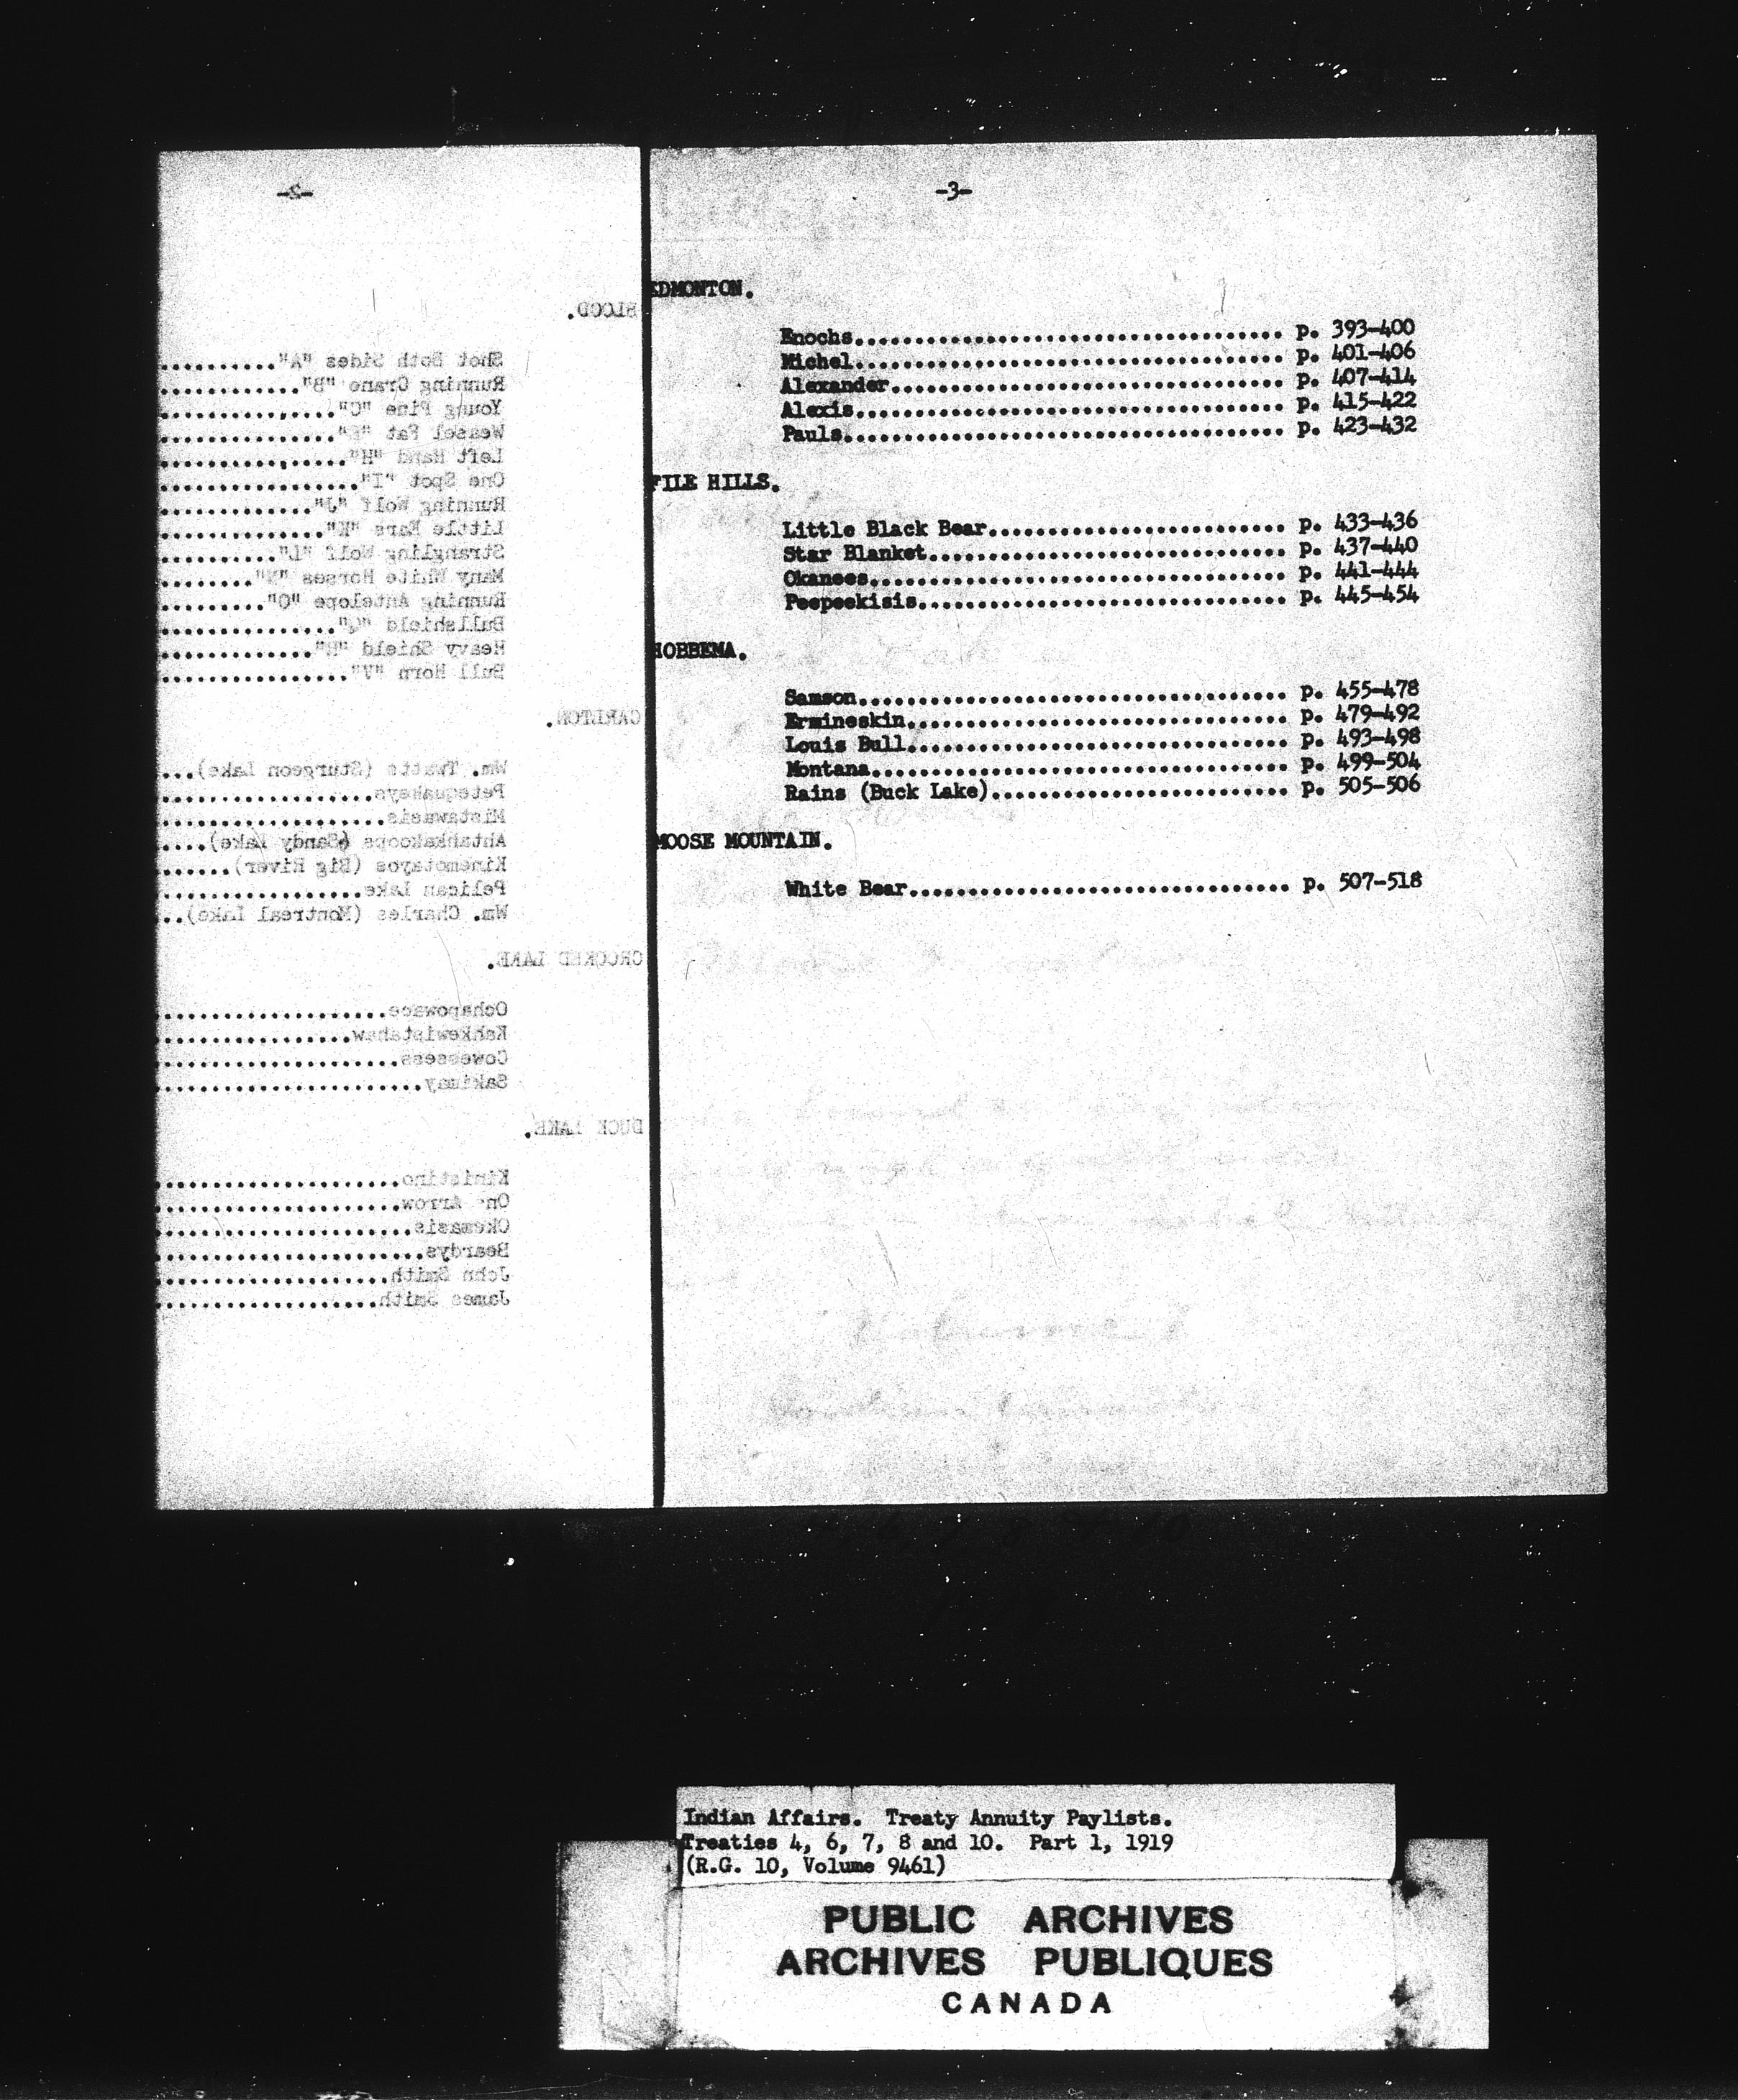 -2-
BLOOD.
Shot Both Sides "A"..........
Running Crane "B"............
Young Pine "C"...............
Weasel Fat ...............
Left Hand "H"................
One Spot "I".................
Running Wolf "J".............
Little Ears "K"..............
Strangling Wolf "L"..........
Many White Horses "N"........
Running Antelope "O".........
Bullshield "Q"...............
Heavy Shield .............
Bull Horn "V"................
CARLTON.
Wm. Twatts (Sturgeon Lake)...
Petequakeys..................
Mistawasis...................
Ahtahkakoops (Sandy Lake)....
Kinemotayos (Big River)......
Pelican Lake.................
Wm. Charles (Montreal Lake)..
CROOKED LAKE.
Ochapowace...................
Kahkewistahaw................
Cowessess....................
Sakimay......................
DUCK LAKE.
Kinistino....................
One Arrow....................
Okemasis.....................
Beardys......................
John Smith...................
James Smith..................
-3-
EDMONTON.
Enochs.................................... p. 393-400
Michel.................................... p. 401-406
Alexander................................. p. 407-414
Alexis.................................... p. 415-422
Pauls..................................... p. 423-432
FILE HILLS.
Little Black Bear......................... p. 433-436
Star Blanket.............................. p. 437-440
Okanees................................... p. 441-444
Peepeekisis............................... p. 445-454
HOBBEMA.
Samson.................................... p. 455-478
Ermineskin................................ p. 479-492
Louis Bull................................ p. 493-498
Montana................................... p. 499-504
Rains (Buck Lake)......................... p. 505-506
MOOSE MOUNTAIN.
White Bear................................ p. 507-518
Indian Affairs. Treaty Annuity Paylists.
Treaties 4, 6, 7, 8 and 10. Part 1, 1919
(R.G. 10, Volume 9461)
PUBLIC ARCHIVES
ARCHIVES PUBLIQUES
CANADA